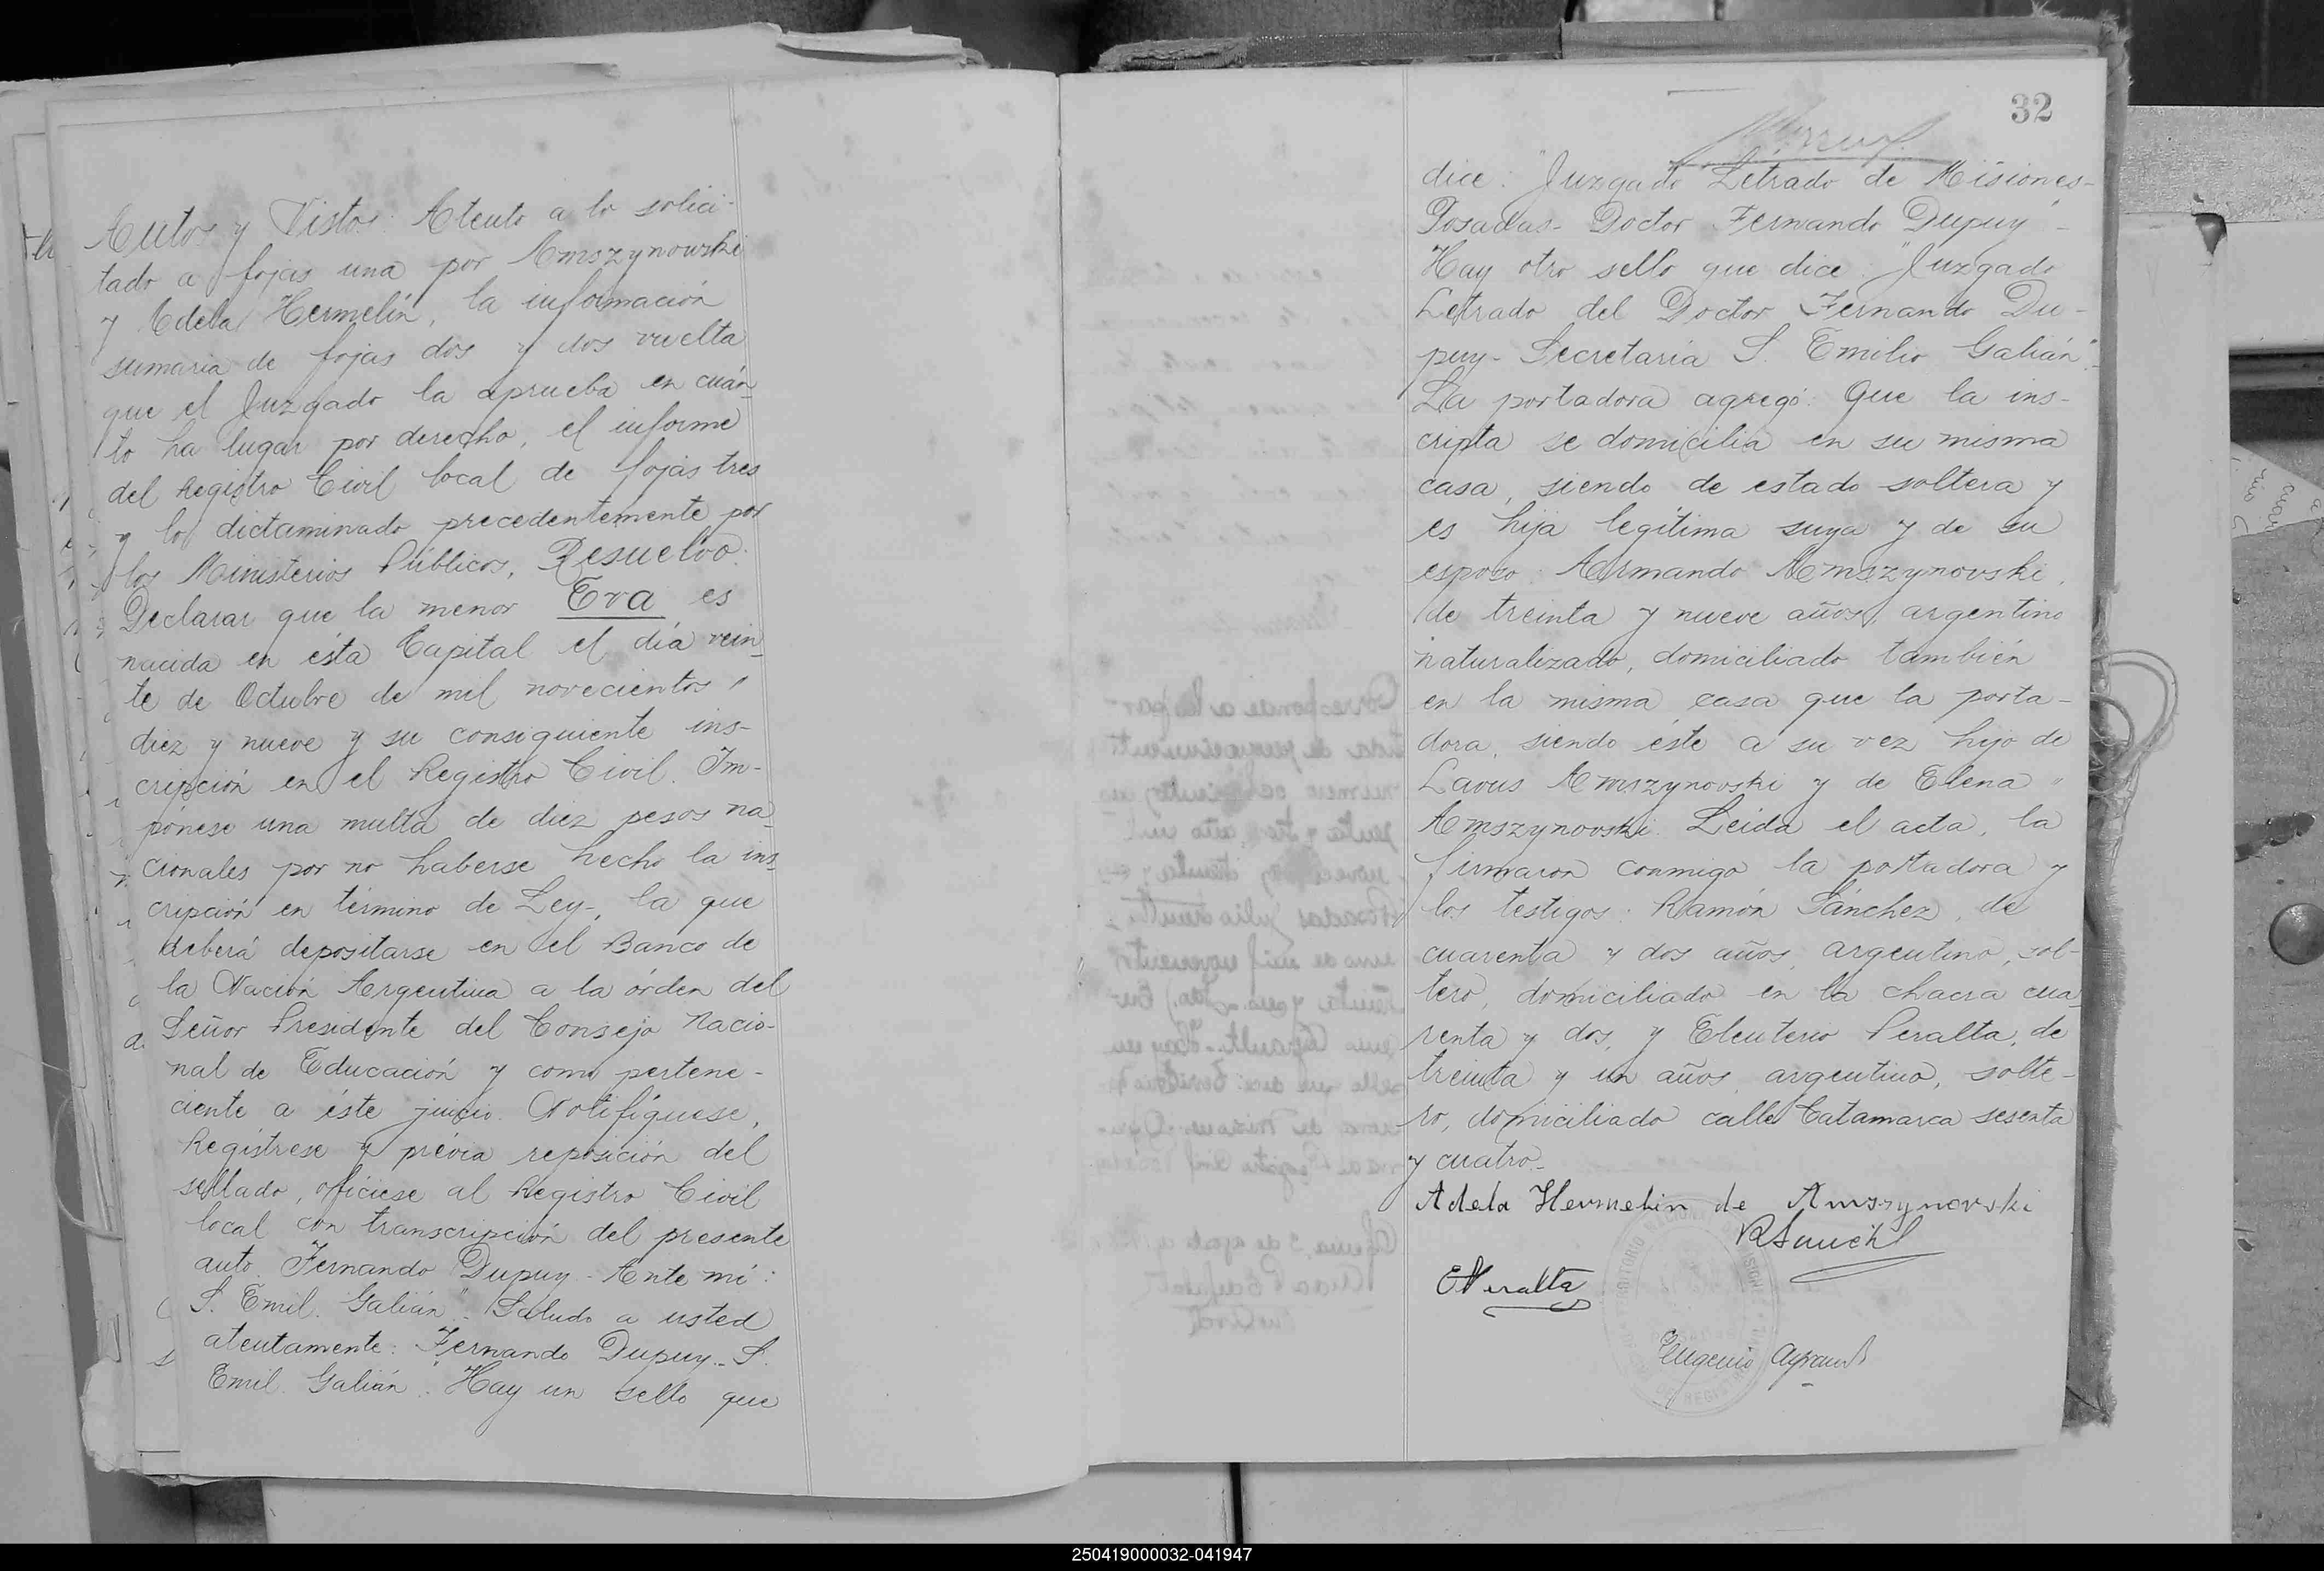 Autos y Vistos: Atento a lo solici-
tado a fojas una por Amszynowski
y Adela Hermelin, la información
sumaria de fojas dos y dos vuelta
que el Juzgado la aprueba en cuán-
to ha lugar por derecho, el informe
del Registro Civil local de fojas tres
y lo dictaminado precedentemente por
los Ministerios Públicos, Resuelvo:
Declarar que la menor Eva es
nacida en ésta Capital el día vein-
te de Octubre de mil novecientos "
diez y nueve y su consiguiente ins-
cripción en el Registro Civil. Im-
pónese una multa de diez pesos na-
cionales por no haberse hecho la ins-
cripción en término de Ley-, la que
deberá depositarse en el Banco de
la Nación Argentina a la órden del
Señor Presidente del Consejo Nacio-
nal de Educación y como pertene-
ciente a éste juicio. Notifíquese,
Regístrese y prévia reposición del
sellado, ofíciese al Registro Civil
local con transcripción del presente
auto. Fernando Dupuy - Ante mi:
S. Emil. Galián". Saludo a usted
atentamente: Fernando Dupuy - S.
Emil. Galián. Hay un sello que
32
dice: "Juzgado Letrado de Misiones-
Posadas- Doctor Fernando Dupuy" -
Hay otro sello que dice: "Juzgado
Letrado del Doctor Fernando Du-
puy- Secretaría S. Emilio Galián".-
La portadora agregó: Que la ins-
cripta se domicilia en su misma
casa, siendo de estado soltera y
es hija legítima suya y de su
esposo: Armando Amszynovski,
de treinta y nueve años, argentino
naturalizado, domiciliado también
en la misma casa que la porta-
dora, siendo éste a su vez hijo de
Lavus Amszynovski y de Elena "
Amszynovski. Leida el acta, la
firmaron conmigo la portadora y
los testigos: Ramón Sánchez, de
cuarenta y dos años, argentino, sol-
tero, domiciliado en la chacra cua-
renta y dos, y Eleuterio Peralta, de
treinta y un años, argentino, solte-
ro, domiciliado calle Catamarca sesenta
y cuatro.-
Adela Hermelin de Amszynovski
RSanchez
EPeralta
Eugenio
250419000032-041947